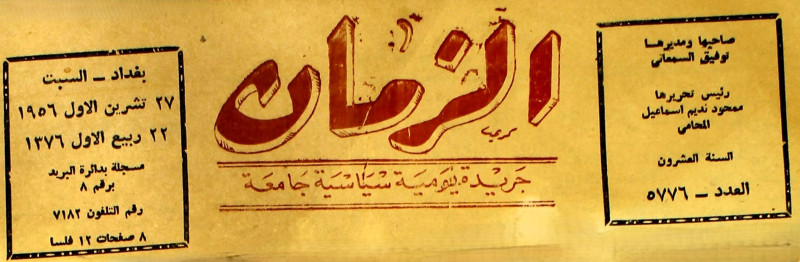 صاحبها ومديرها
توفيق السمعاني
رئيس تحريرها
محمود نديم اسماعيل
المحامي
السنة العشرون
العدد – ٥٧٧٦
الزمان
جريدة يومية سياسية جامعة
بغداد – السبت
٢٧ تشرين الاول ١٩٥٦
٢٢ ربيع الاول ١٣٧٦
مسجلة بدائرة البريد
برقم ٨
رقم التلفون ٧١٨٢
٨ صفحات ١٢ فلسا